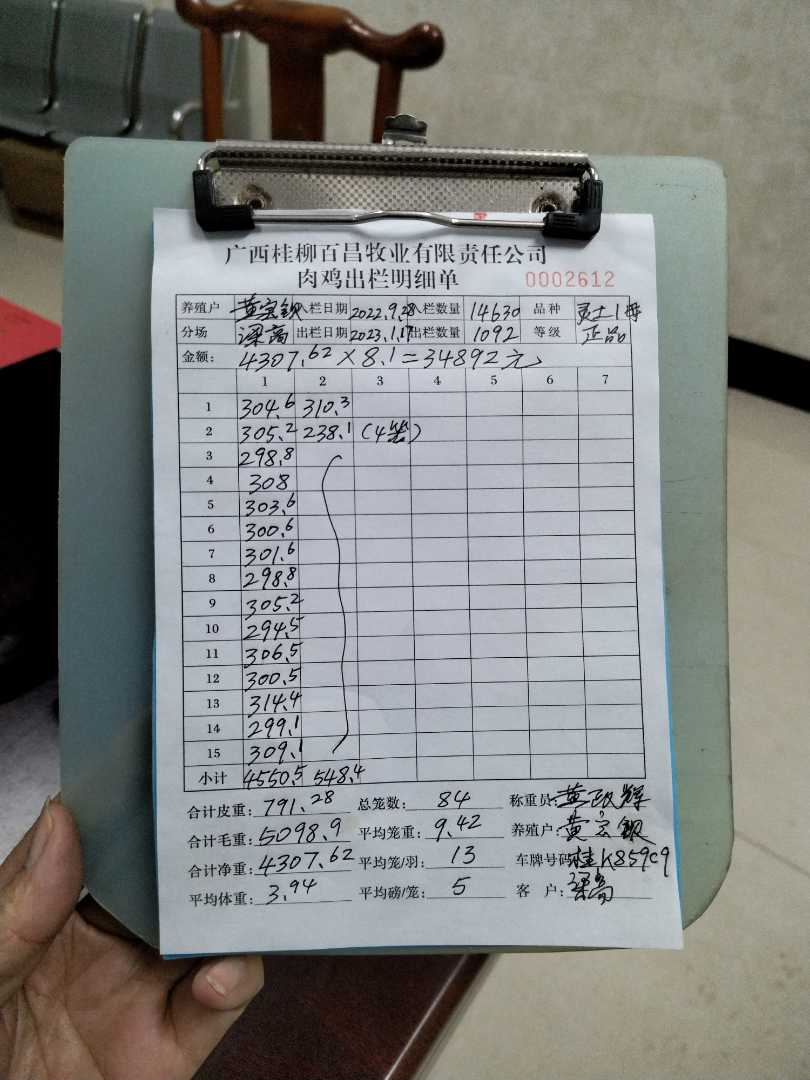 广西桂柳百昌牧业有限责任公司
肉鸡出栏明细单 0002612
养殖户 黄宗钡 入栏日期 2022.9.28 入栏数量 14630 品种
分场 深高 出栏日期 2023.1.17 出栏数量 1092 等级 正品
金额: 4307.62×8.1=34892元
1 2 3 4 5 6 7
1 304.6 310.3
2 305.2 238.1 (4笼)
3 298.8
4 308
5 303.6
6 300.6
7 301.6
8 298.8
9 305.2
10 294.5
11 306.5
12 300.5
13 314.4
14 299.1
15 309.1
小计 4550.5 548.4
合计皮重: 791.28 总笼数: 84 称重员:
合计毛重: 5098.9 平均笼重: 9.42 养殖户: 黄宗钡
合计净重: 4307.62 平均笼/羽: 13 车牌号码: 桂K859c9
平均体重: 3.94 平均磅/笼: 5 客 户: